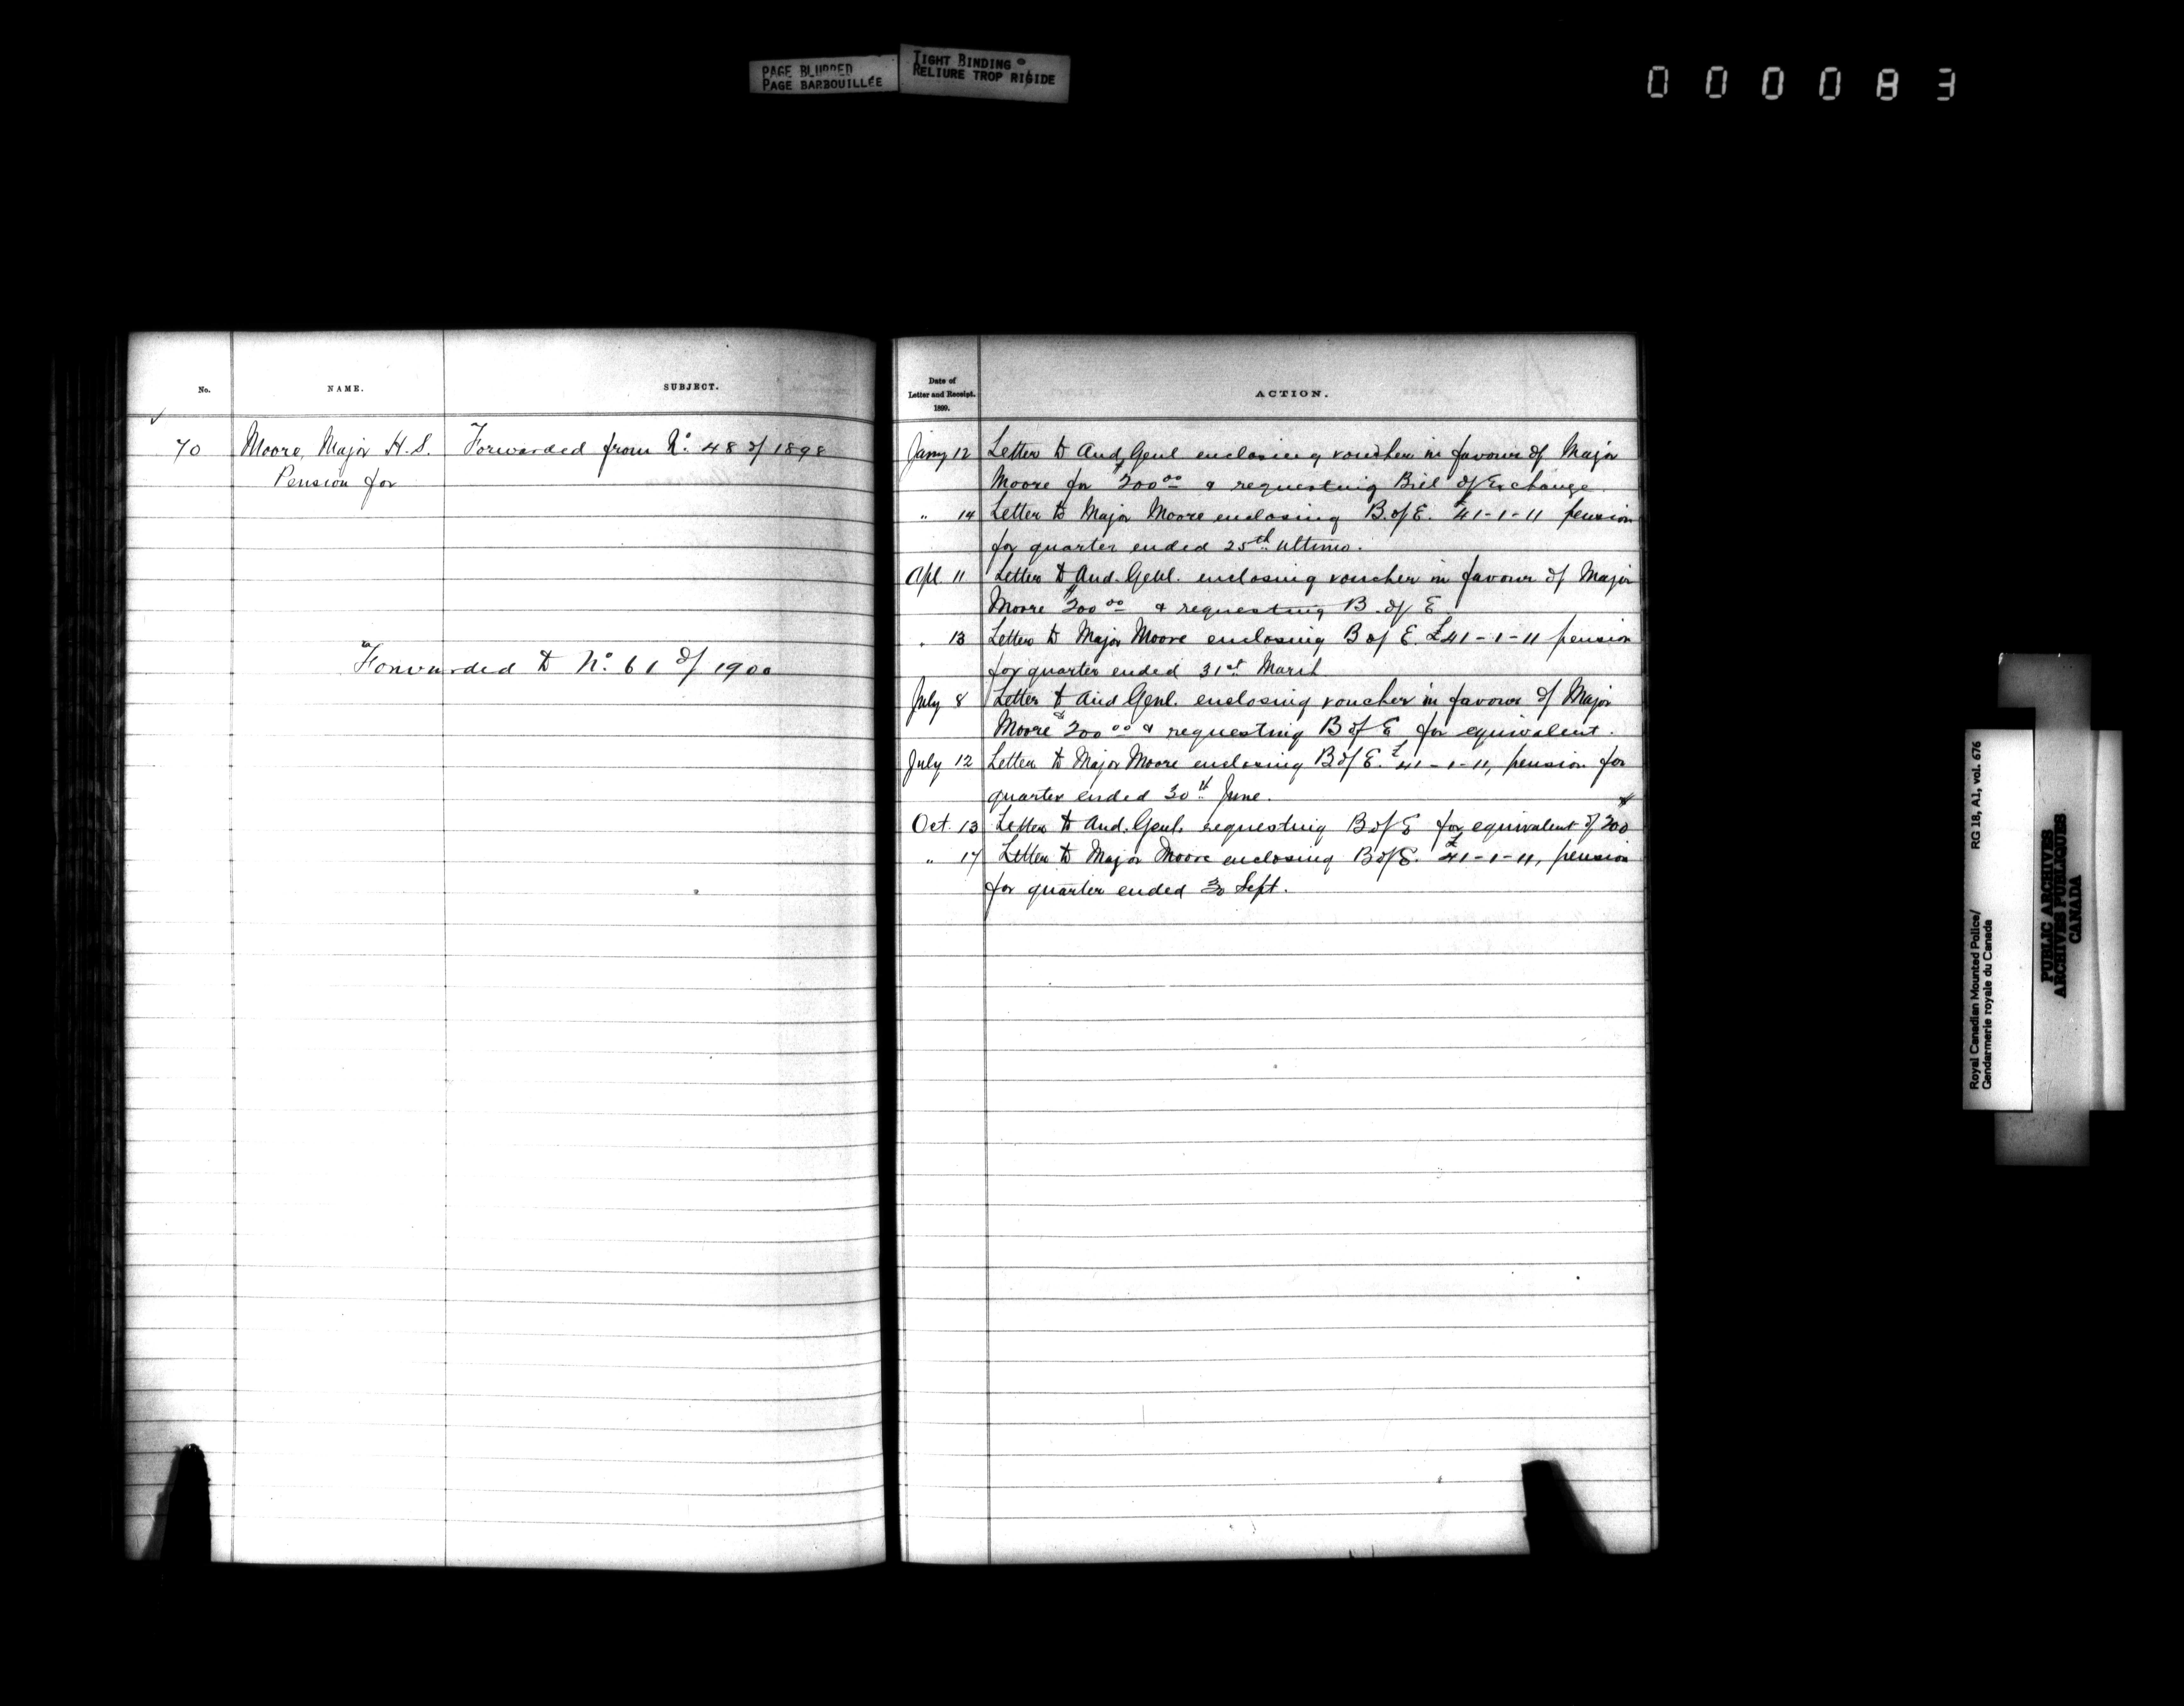 PAGE BLURRED
PAGE BARBOUILLÉE
TIGHT BINDING
RELIURE TROP RIGIDE
000083
No.
NAME.
SUBJECT.
70
Moore, Major H. S.
Forwarded from No. 48 of 1898
Pension for
Forwarded to No. 61 of 1900
Date of
Letter and Receipt.
1899.
ACTION.
Janry 12 Letter to Aud. Genl enclosing voucher in favour of Major
Moore for $200 00 & requesting Bill of Exchange.
" 14 Letter to Major Moore enclosing B. of E. £41-1-11 pension
for quarter ended 25th ultimo.
Apl. 11 Letter to Aud. Genl. enclosing voucher in favour of Major
Moore $200 00 & requesting B. of E
" 13 Letter to Major Moore enclosing B of E. £41-1-11 pension
for quarter ended 31st March
July 8 Letter to Aud Genl. enclosing voucher in favour of Major
Moore $200 00 & requesting B of E for equivalent.
July 12 Letter to Major Moore enclosing B of E. £41-1-11, pension for
quarter ended 30th June.
Oct. 13 Letter to Aud. Genl. requesting B of E for equivalent of $200
" 17 Letter to Major Moore enclosing B of E. £41-1-11, pension
for quarter ended 30 Sept.
Royal Canadian Mounted Police/
Gendarmerie royale du Canada
RG 18, A1, vol. 676
PUBLIC ARCHIVES
ARCHIVES PUBLIQUES
CANADA